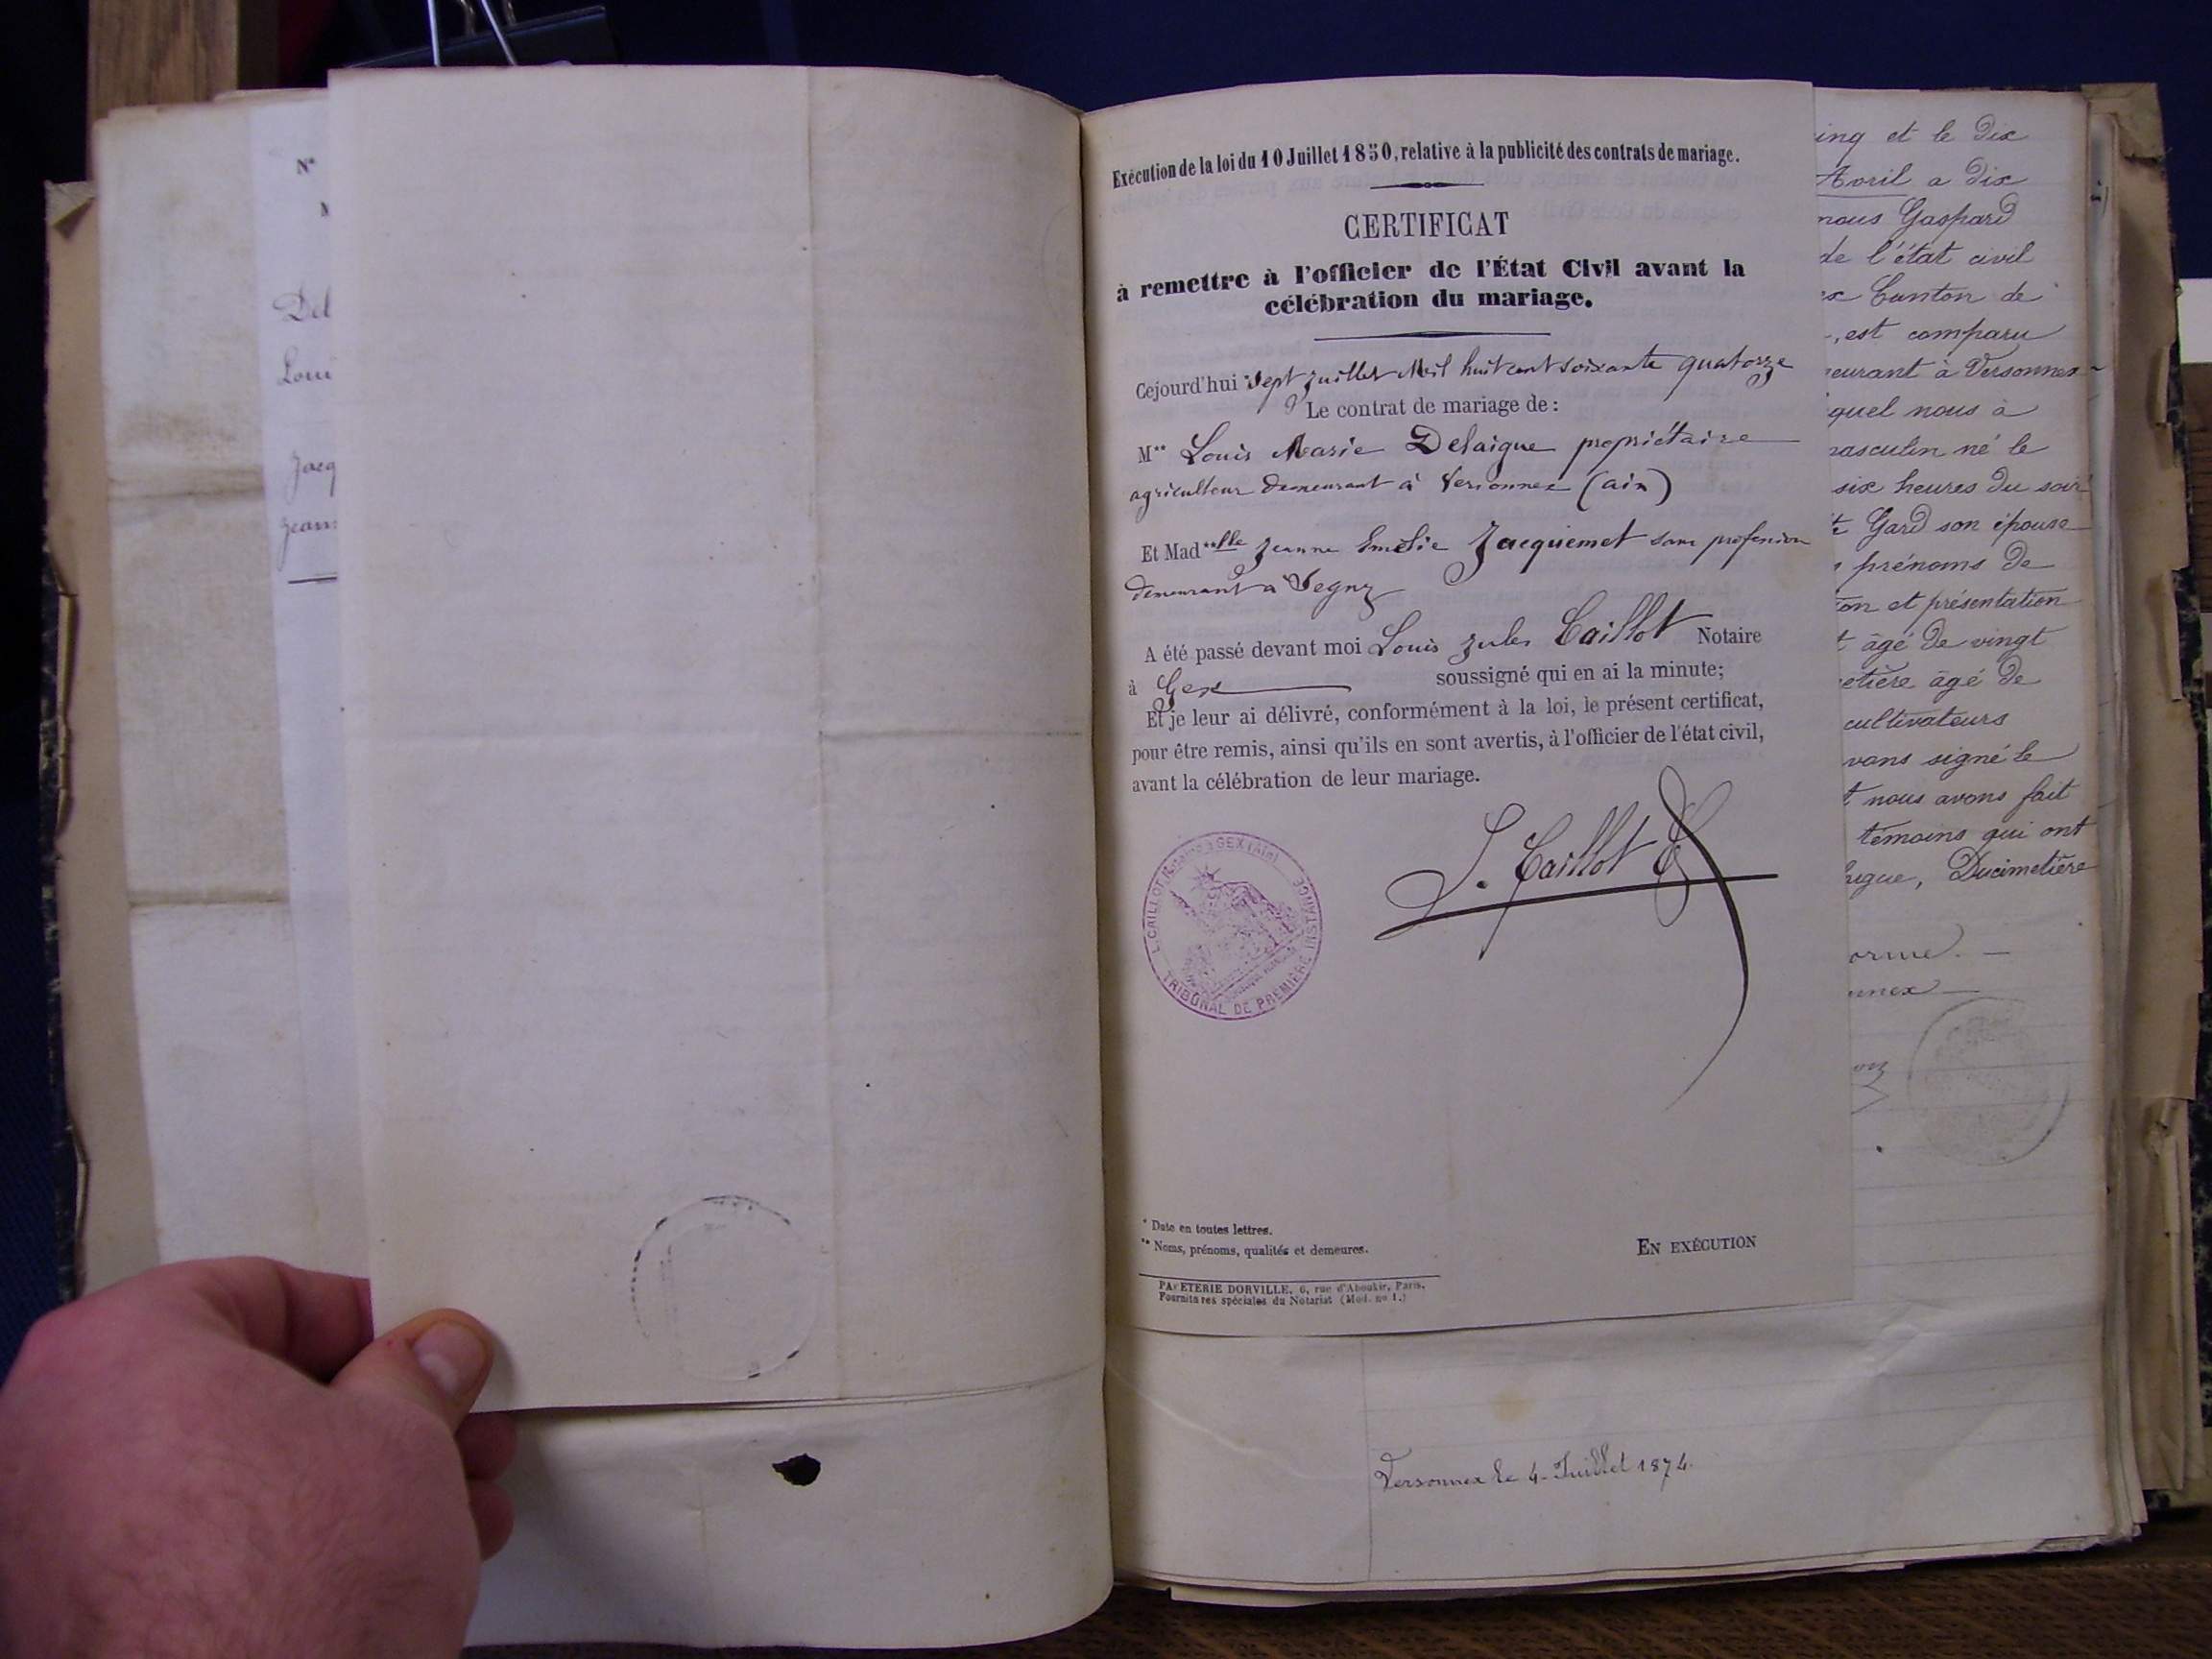 N°
Del
Loui
Jacq
Jean
Exécution de la loi du 10 Juillet 1850, relative à la publicité des contrats de mariage.
CERTIFICAT
à remettre à l'officier de l'État Civil avant la
célébration du mariage.
Cejourd'hui * Sept Juillet Mil huit cent soixante quatorze
Le contrat de mariage de :
M** Louis Marie Delaigue propriétaire
agriculteur demeurant à Versonnex (ain)
Et Mad**lle Jeanne Emélie Jacquemet sans profession
demeurant à Segny
A été passé devant moi Louis Jules Caillot Notaire
à Gex soussigné qui en ai la minute;
Et je leur ai délivré, conformément à la loi, le présent certificat,
pour être remis, ainsi qu'ils en sont avertis, à l'officier de l'état civil,
avant la célébration de leur mariage.
L. Caillot
L. CAILLOT Notaire à GEX (Ain)
TRIBUNAL DE PREMIÈRE INSTANCE
* Date en toutes lettres.
** Noms, prénoms, qualités et demeures.
EN EXÉCUTION
PAPETERIE DORVILLE, 6, rue d'Aboukir, Paris.
Fournitures spéciales du Notariat (Mod. no 1.)
Versonnex le 4 Juillet 1874.
inq et le dix
Avril a dix
nous Gaspard
de l'état civil
ex Canton de
, est comparu
eurant à Versonnex
quel nous a
masculin né le
six heures du soir
te Gard son épouse
prénoms de
ion et présentation
t âgé de vingt
etière âgé de
cultivateurs
vons signé le
t nous avons fait
témoins qui ont
higue, Ducimetière
orme. —
nnex —